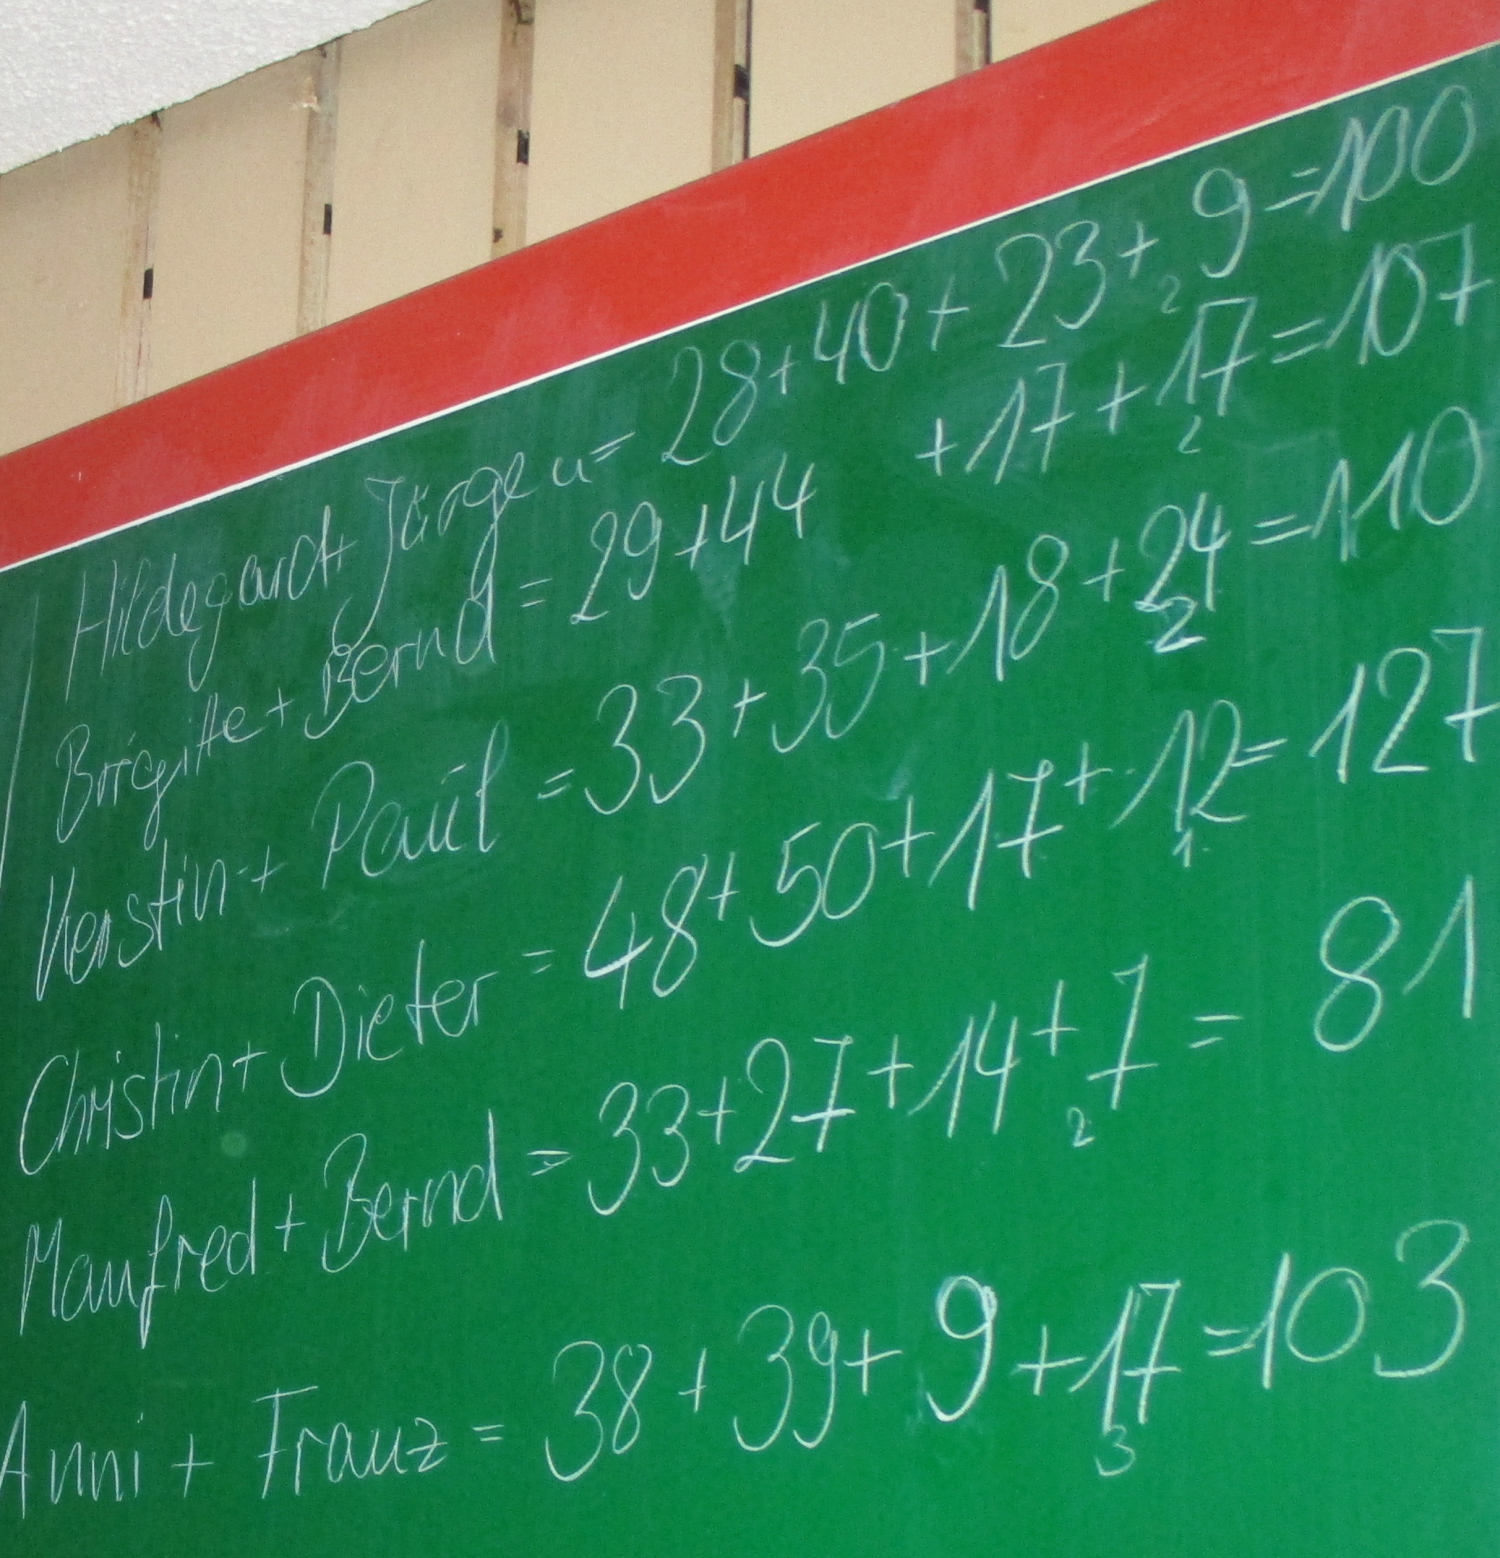 Hildegard + Jürgen = 28 + 40 + 23 + 9 = 100
2
Birgitte + Bernd = 29 + 44 + 17 + 17 = 107
2
Kerstin + Paul = 33 + 35 + 18 + 24 = 110
2
Christin + Dieter = 48 + 50 + 17 + 12 = 127
1
Manfred + Bernd = 33 + 27 + 14 + 7 = 81
2
Anni + Franz = 38 + 39 + 9 + 17 = 103
3